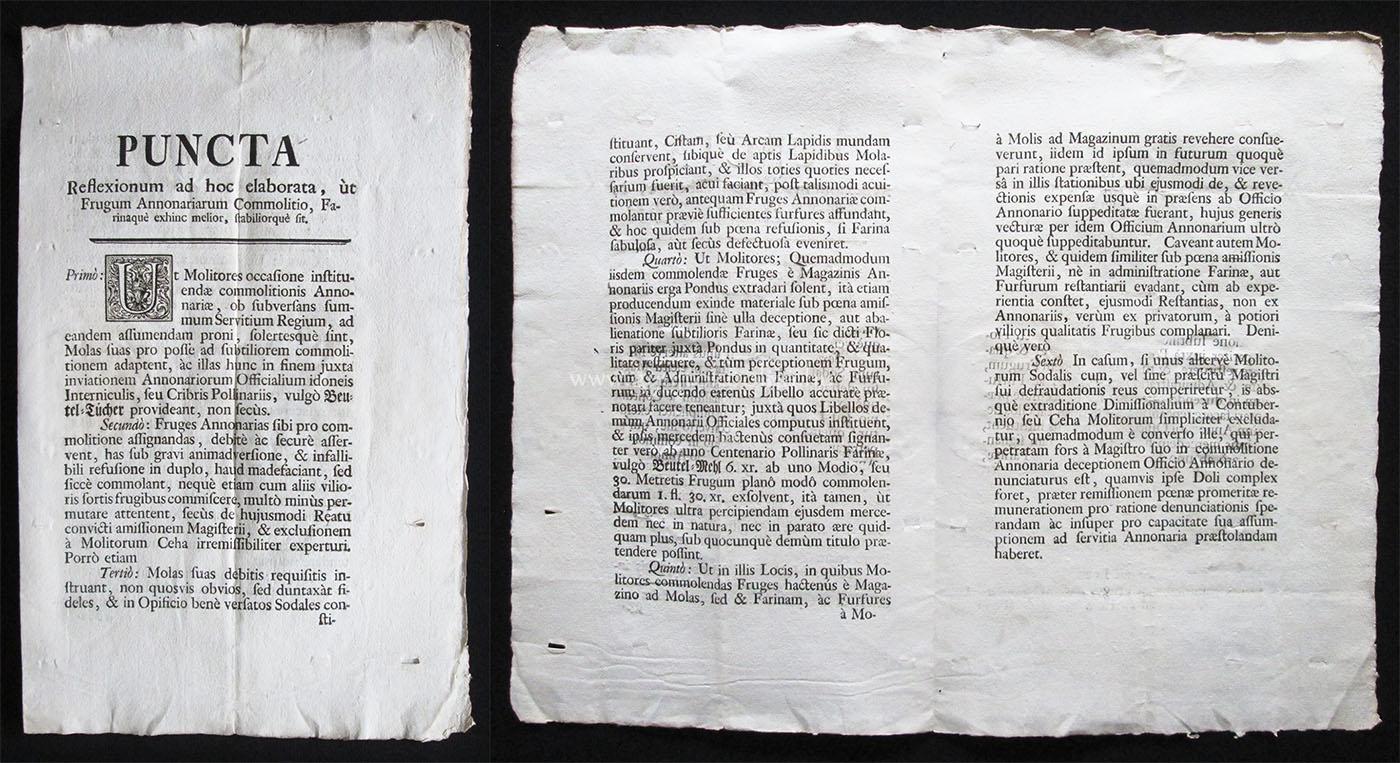 PUNCTA
Reflexionum ad hoc elaborata, ùt
Frugum Annonariarum Commolitio, Fa-
rinaquè exhinc melior, stabiliorquè sit.
Primò: Ut Molitores occasione institu-
endæ commolitionis Anno-
nariæ, ob subversans sum-
mum Servitium Regium, ad
eandem assumendam proni, solertesquè sint,
Molas suas pro posse ad subtiliorem commoli-
tionem adaptent, àc illas hunc in finem juxta
inviationem Annonariorum Officialium idoneis
Interniculis, seu Cribris Pollinariis, vulgò Beu-
tel-Tücher provideant, non secùs.
Secundò: Fruges Annonarias sibi pro com-
molitione assignandas, debitè àc securè asser-
vent, has sub gravi animadversione, & infalli-
bili refusione in duplo, haud madefaciant, sed
siccè commolant, nequè etiam cum aliis vilio-
ris sortis frugibus commiscere, multò minùs per-
mutare attentent, secùs de hujusmodi Reatu
convicti amissionem Magisterii, & exclusionem
à Molitorum Ceha irremissibiliter experturi.
Porrò etiam
Tertiò: Molas suas debitis requisitis in-
struant, non quosvis obvios, sed duntaxàt fi-
deles, & in Opificio benè versatos Sodales con-
sti-
stituant, Cistam, seù Arcam Lapidis mundam
conservent, sibiquè de aptis Lapidibus Mola-
ribus prospiciant, & illos toties quoties neces-
sarium fuerit, acui faciant, post talismodi acui-
tionem verò, antequam Fruges Annonariæ com-
molantur præviè sufficientes furfures affundant,
& hoc quidem sub pœna refusionis, si Farina
sabulosa, aùt secùs defectuosa eveniret.
Quartò: Ut Molitores; Quemadmodum
iisdem commolendæ Fruges è Magazinis An-
nonariis erga Pondus extradari solent, ità etiam
producendum exinde materiale sub pœna amis-
sionis Magisterii sinè ulla deceptione, aut aba-
lienatione subtilioris Farinæ, seu sic dicti Flo-
ris pariter juxtà Pondus in quantitate, & qua-
litate restituere, & tùm perceptionem Frugum,
cùm & Administrationem Farinæ, àc Furfu-
rum in ducendo eatenùs Libello accuratè præ-
notari facere teneantur; juxtà quos Libellos de-
mùm Annonarii Officiales computus instituent,
& ipsis mercedem hactenùs consuetam signan-
ter verò ab uno Centenario Pollinaris Farinæ,
vulgò Beutel-Mehl 6. xr. ab uno Modio, seu
30. Metretis Frugum planô modô commolen-
darum 1. fl. 30. xr. exsolvent, ità tamen, ùt
Molitores ultra percipiendam ejusdem merce-
dem nec in natura, nec in parato ære quid-
quam plus, sub quocunquè demùm titulo præ-
tendere possint.
Quintò: Ut in illis Locis, in quibus Mo-
litores commolendas Fruges hactenùs è Maga-
zino ad Molas, sed & Farinam, àc Furfures
à Mo-
à Molis ad Magazinum gratis revehere consue-
verunt, iidem id ipsum in futurum quoquè
pari ratione præstent, quemadmodum vice ver-
sâ in illis stationibus ubi ejusmodi de, & reve-
ctionis expensæ usquè in præsens ab Officio
Annonario suppeditatæ fuerant, hujus generis
vecturæ per idem Officium Annonarium ultrò
quoquè suppeditabuntur. Caveant autem Mo-
litores, & quidem similiter sub pœna amissionis
Magisterii, nè in administratione Farinæ, aut
Furfurum restantiarii evadant, cùm ab expe-
rientia constet, ejusmodi Restantias, non ex
Annonariis, verùm ex privatorum, à potiori
vilioris qualitatis Frugibus complanari. Deni-
què verò
Sextò In casum, si unus alterve Molito-
rum Sodalis cum, vel sine præscitu Magistri
sui defraudationis reus comperiretur, is abs-
què extraditione Dimissionalium à Contuber-
nio seù Ceha Molitorum simpliciter excluda-
tur, quemadmodum è converso ille, qui per-
petratam fors à Magistro suo in commolitione
Annonaria deceptionem Officio Annonario de-
nunciaturus est, quamvis ipse Doli complex
foret, præter remissionem pœnæ promeritæ re-
munerationem pro ratione denunciationis spe-
randam àc insuper pro capacitate sua assum-
ptionem ad servitia Annonaria præstolandam
haberet.